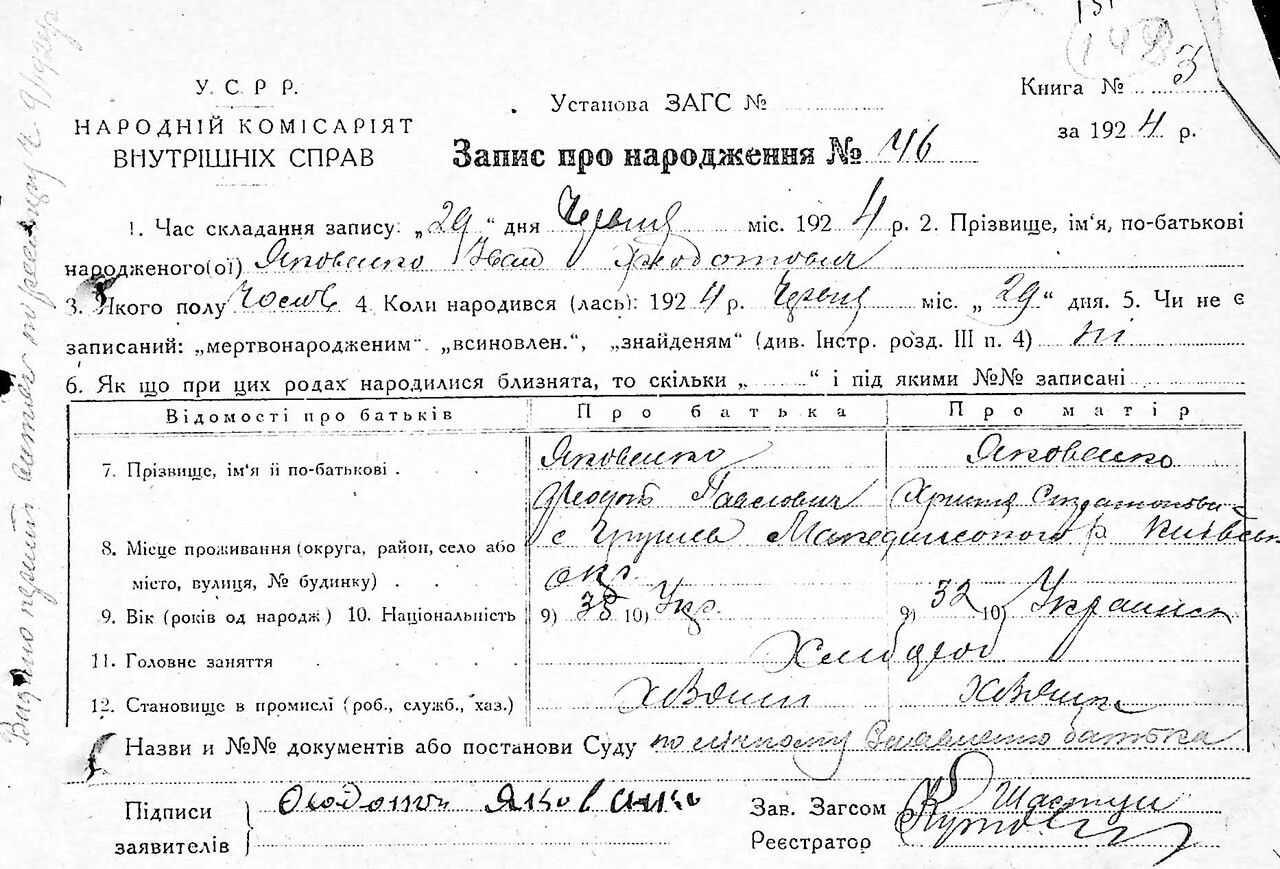 У. С. Р. Р.
НАРОДНІЙ КОМІСАРІЯТ
ВНУТРІШНІХ СПРАВ
Установа ЗАГС №
Запис про народження № 46
Книга № 3
за 1924 р.
1. Час складання запису: „29“ дня Червня міс. 1924 р. 2. Прізвище, ім'я, по-батькові
народженого(ої) Яковенко Іван Феодотович
3. Якого полу чолов 4. Коли народився (лась): 1924 р. Червня міс. „29“ дня. 5. Чи не є
записаний: „мертвонародженим“. „всиновлен.“, „знайденям“ (див. Інстр. розд. III п. 4) ні
6. Як що при цих родах народилися близнята, то скільки „ “ і під якими №№ записані
Відомості про батьків Про батька Про матір
7. Прізвище, ім'я й по-батькові . Яковенко Яковенко
Феодот Павлович Христя
8. Місце проживання (округа, район, село або с Грушев Македонського р Київськ
місто, вулиця, № будинку) . . окр.
9. Вік (років од народж) 10. Національність 9) 38 10) Укр. 9) 32 10) Украинк
11. Головне заняття Хлибороб
12. Становище в промислі (роб., служб., хаз.) хазяин хазяика
Назви и №№ документів або постанови Суду по личному батька
Підписи заявителів Феодот Яковенко
Зав. Загсом
Реєстратор